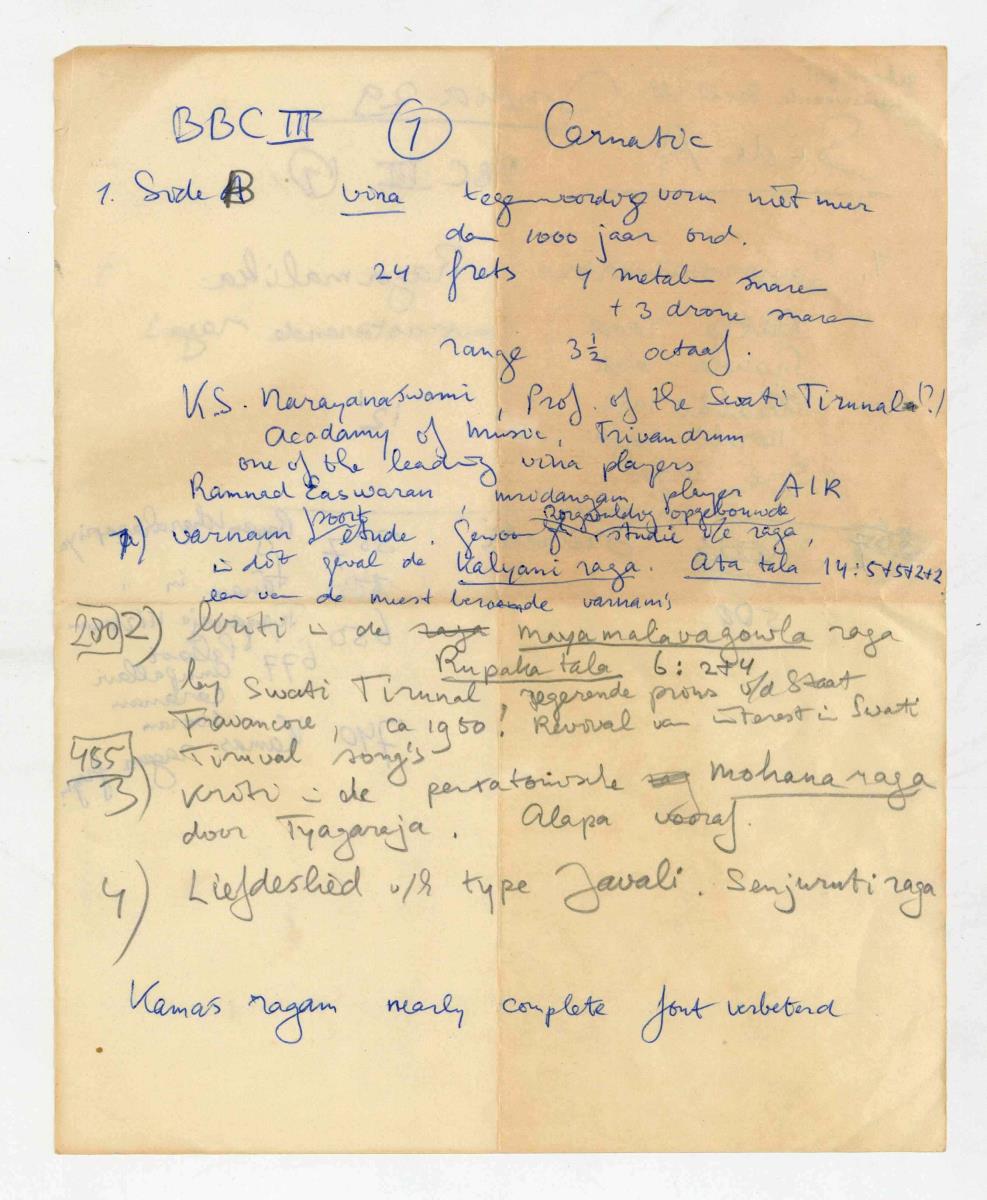 BBC III 1 Carnatic
1. Side B vina tegenwoordig vorm niet meer
dan 1000 jaar oud.
24 frets 4 metalen snaren
+ 3 drone snaren
range 3½ octaaf.
K.S. Narayanaswami, Prof. of the Swati Tirunal (?)
Academy of Music, Trivandrum
one of the leading vina players
Ramnad Easwaran, mridangam player AIR
soort zorgvuldig opgebouwde
1) varnam etude. Gewoonlijk studie v/e raga,
in dit geval de Kalyani raga. Ata tala 14: 5+5+2+2
een van de meest beroemde varnam's
280 2) kriti in de raga mayamalavagowla raga
Rupaka tala 6: 2+4
by Swati Tirunal, regerende prins v/d Staat
Travancore, ca 1950! Revival van interest in Swati
455 Tirunal song's
3) Kriti in de pentatonische rag Mohana raga
door Tyagaraja. Alapa vooraf.
4) Liefdeslied v/h type Javali. Senjuruti raga
Kamas ragam nearly complete fout verbeterd